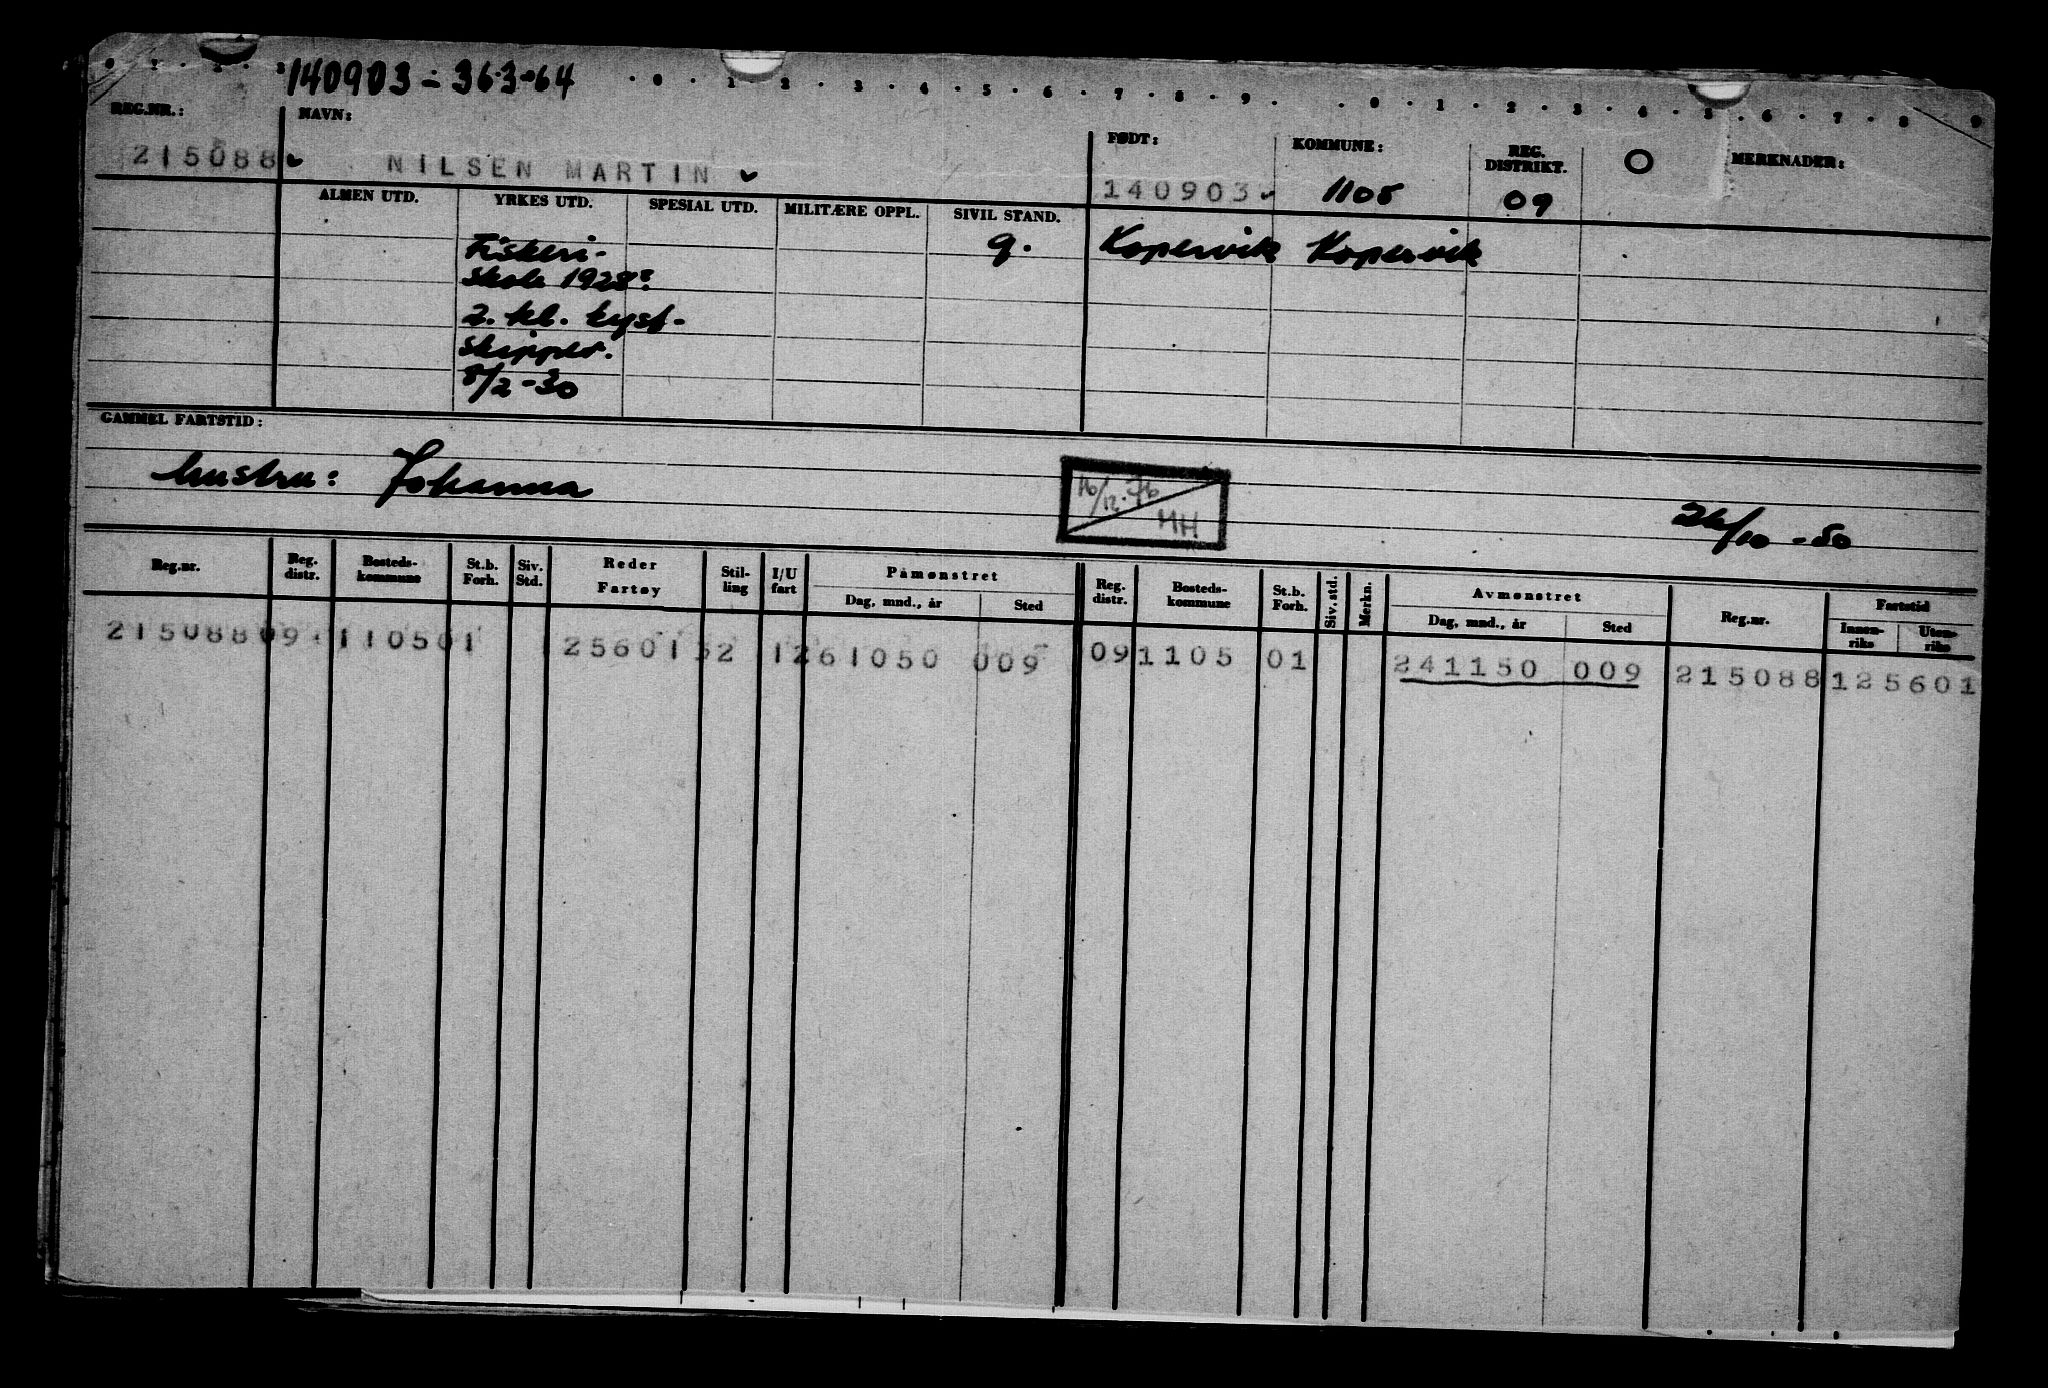 0 1 2 3 140903 - 363-64 0 1 2 3 4 5 6 7 8 9 0 1 2 3 4 5 6 7 8 9
REG.NR.: NAVN: FØDT: KOMMUNE: REG. DISTRIKT. O MERKNADER:
215088 NILSEN MARTIN 140903 1105 09
ALMEN UTD. YRKES UTD. SPESIAL UTD. MILITÆRE OPPL. SIVIL STAND.
Fiskeri- g. Kopervik Kopervik
skole 1928?
2. kl. kyst-
skipper.
8/2-30
GAMMEL FARTSTID:
hustru: Johanna 16/12.76 MH 26/10-50
Reg.nr. Reg. distr. Bosteds-kommune St.b. Forh. Siv. Std. Reder Fartøy Stil-ling I/U fart Påmønstret Dag, mnd., år Sted Reg. distr. Bosteds-kommune St.b. Forh. Siv. std. Merkn. Avmønstret Dag, mnd., år Sted Reg.nr. Fartstid Innen-riks Uten-riks
215088 09 1105 01 25601 52 1 261050 009 09 1105 01 241150 009 215088 125601